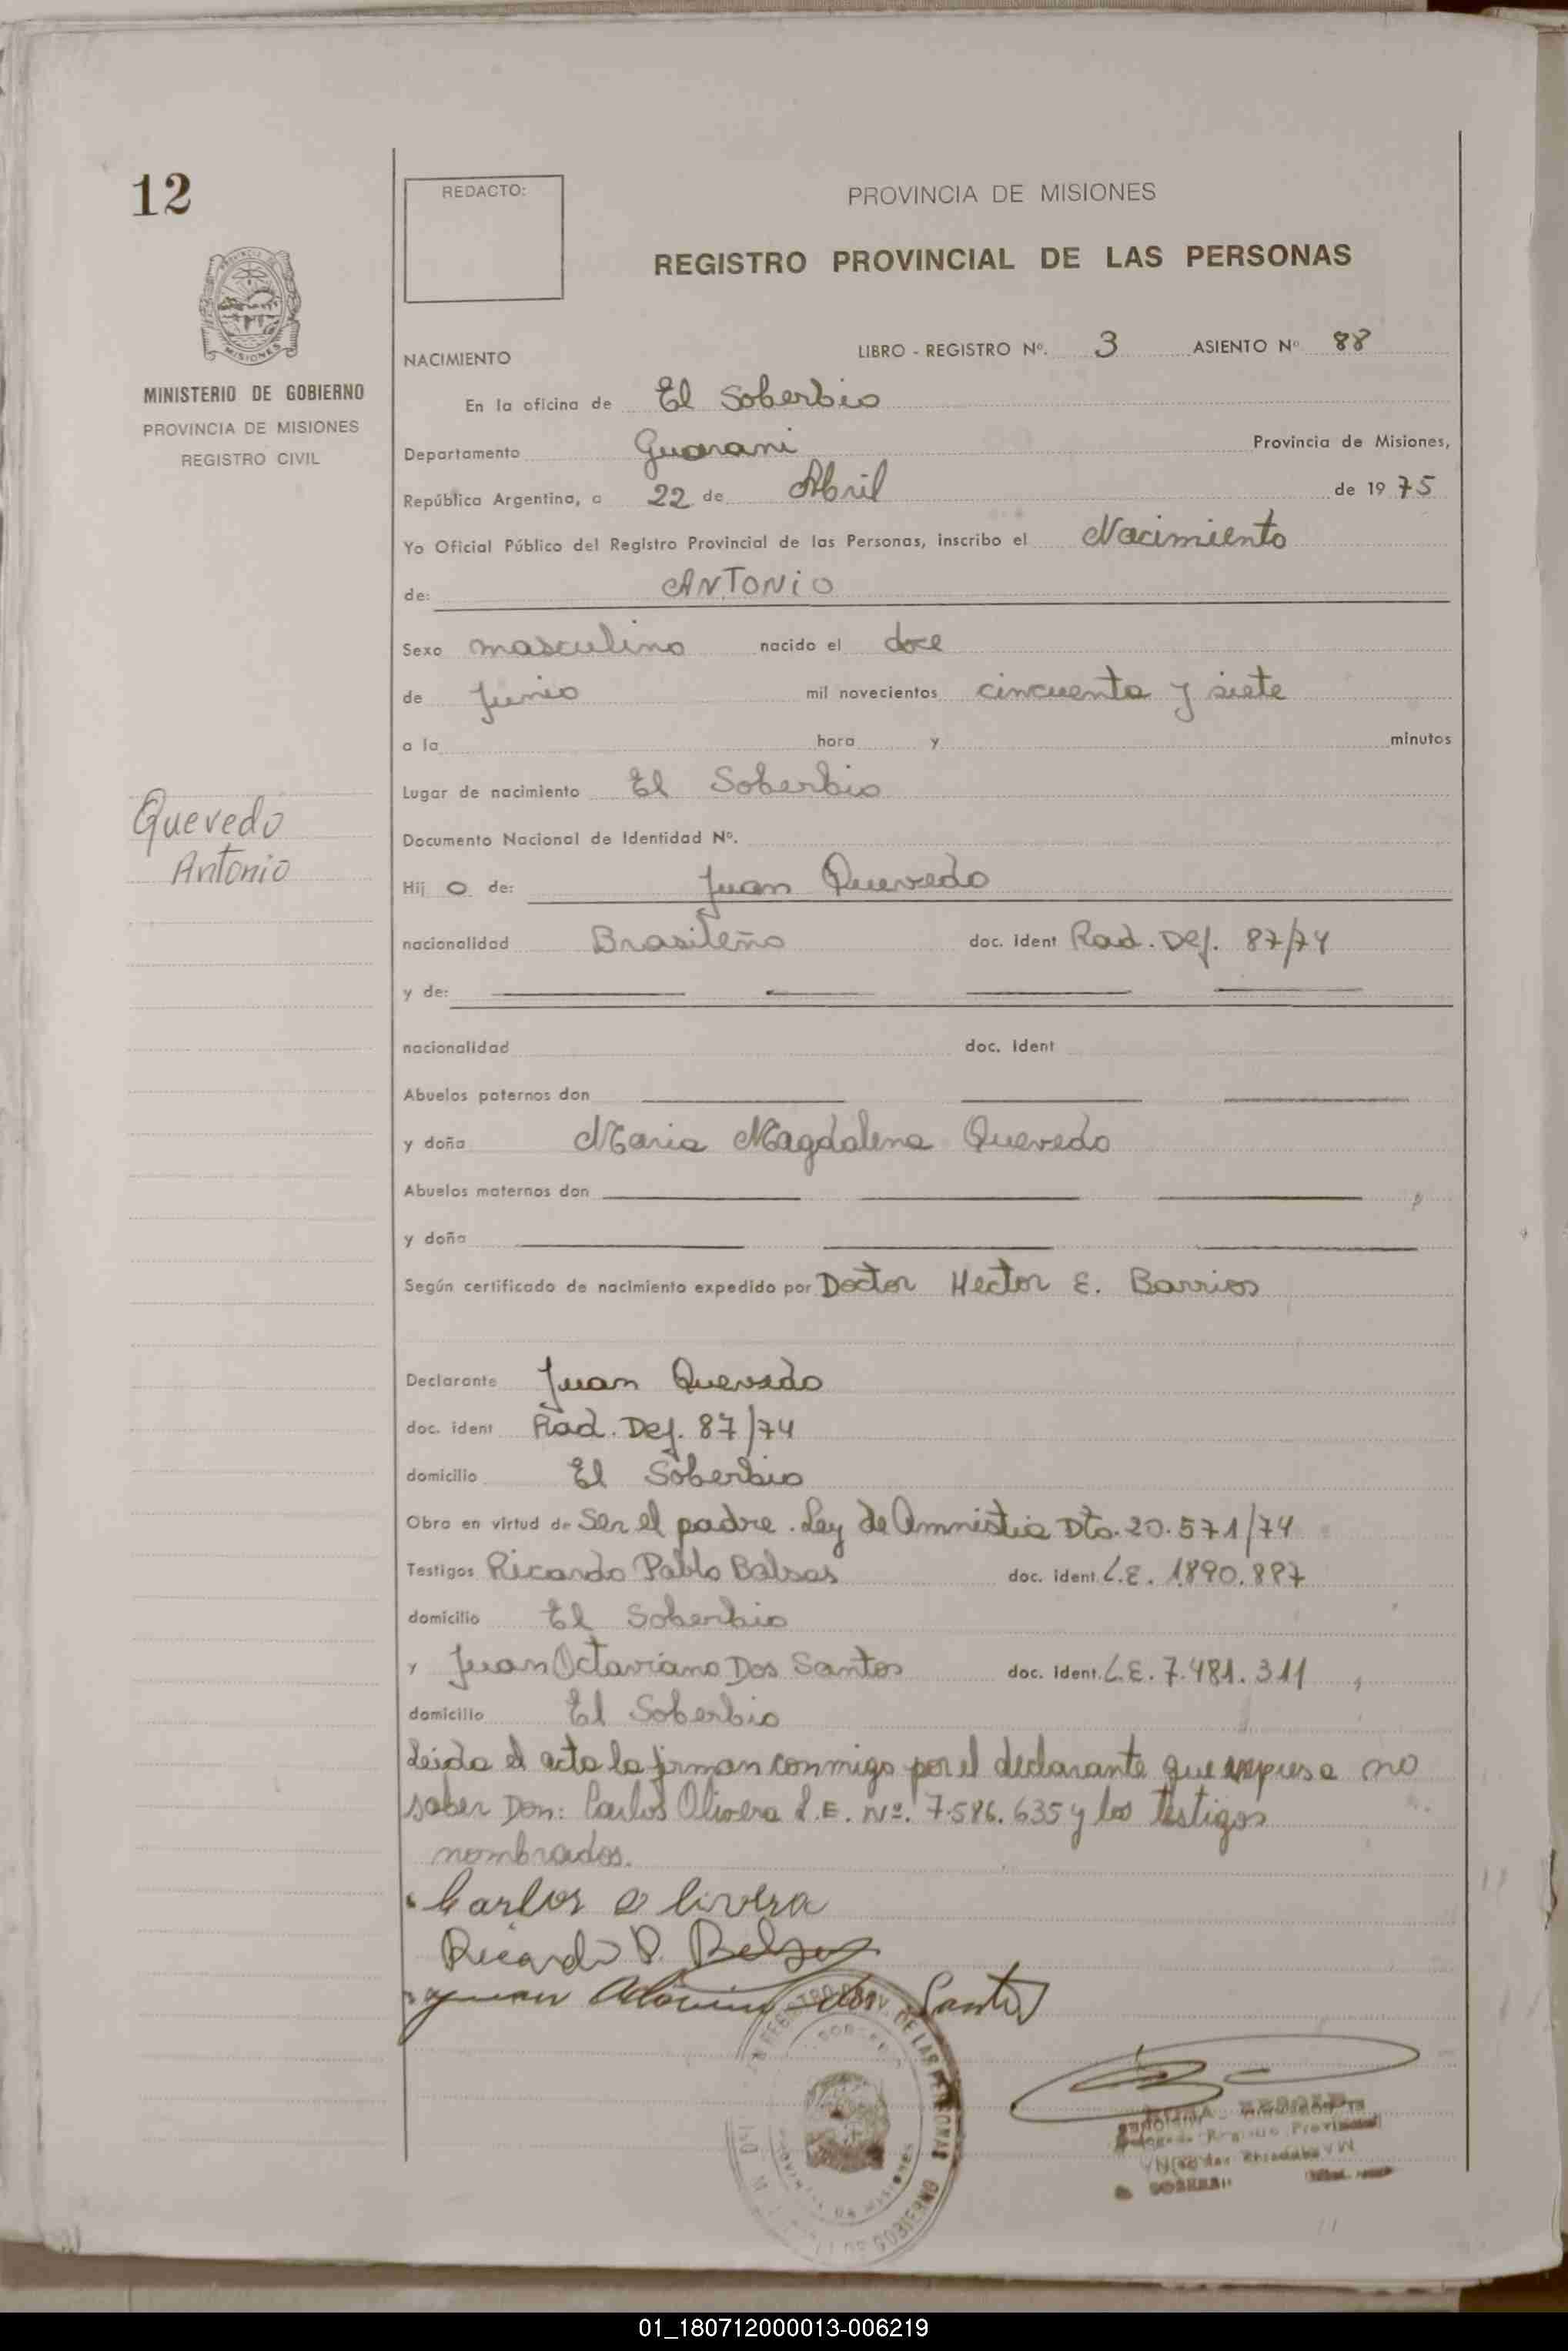 12
REDACTO:
PROVINCIA DE MISIONES
REGISTRO PROVINCIAL DE LAS PERSONAS
MISIONES
MINISTERIO DE GOBIERNO
PROVINCIA DE MISIONES
REGISTRO CIVIL
NACIMIENTO LIBRO - REGISTRO Nº. 3 ASIENTO Nº 88
En la oficina de El Soberbio
Departamento Guarani Provincia de Misiones,
República Argentina, a 22 de Abril de 1975
Yo Oficial Público del Registro Provincial de las Personas, inscribo el Nacimiento
de: ANTONIO
Sexo masculino nacido el doce
de Junio mil novecientos cincuenta y siete
a la hora y minutos
Lugar de nacimiento El Soberbio
Quevedo
Antonio
Documento Nacional de Identidad Nº.
Hij o de: Juan Quevedo
nacionalidad Brasileño doc. ident Rad. Def. 87/74
y de:
nacionalidad doc. ident
Abuelos paternos don
y doña Maria Magdalena Quevedo
Abuelos maternos don
y doña
Según certificado de nacimiento expedido por Doctor Hector E. Barrios
Declarante Juan Quevedo
doc. ident Rad. Def. 87/74
domicilio El Soberbio
Obra en virtud de Ser el padre. Ley de Amnistia Dto. 20.571/74
Testigos Ricardo Pablo Balsas doc. ident. L.E. 1890.887
domicilio El Soberbio
y Juan Octaviano Dos Santos doc. ident. L.E. 7.481.311
domicilio El Soberbio
Leida el acta la firman conmigo por el declarante que expresa no
saber Don: Carlos Olivera L.E. Nº. 7.586.635 y los testigos
nombrados.
Carlos Olivera
Ricardo P.
Juan dos Santos
REGISTRO PROV. DE LAS PERSONAS
GOBIERNO
MISIONES
01_180712000013-006219